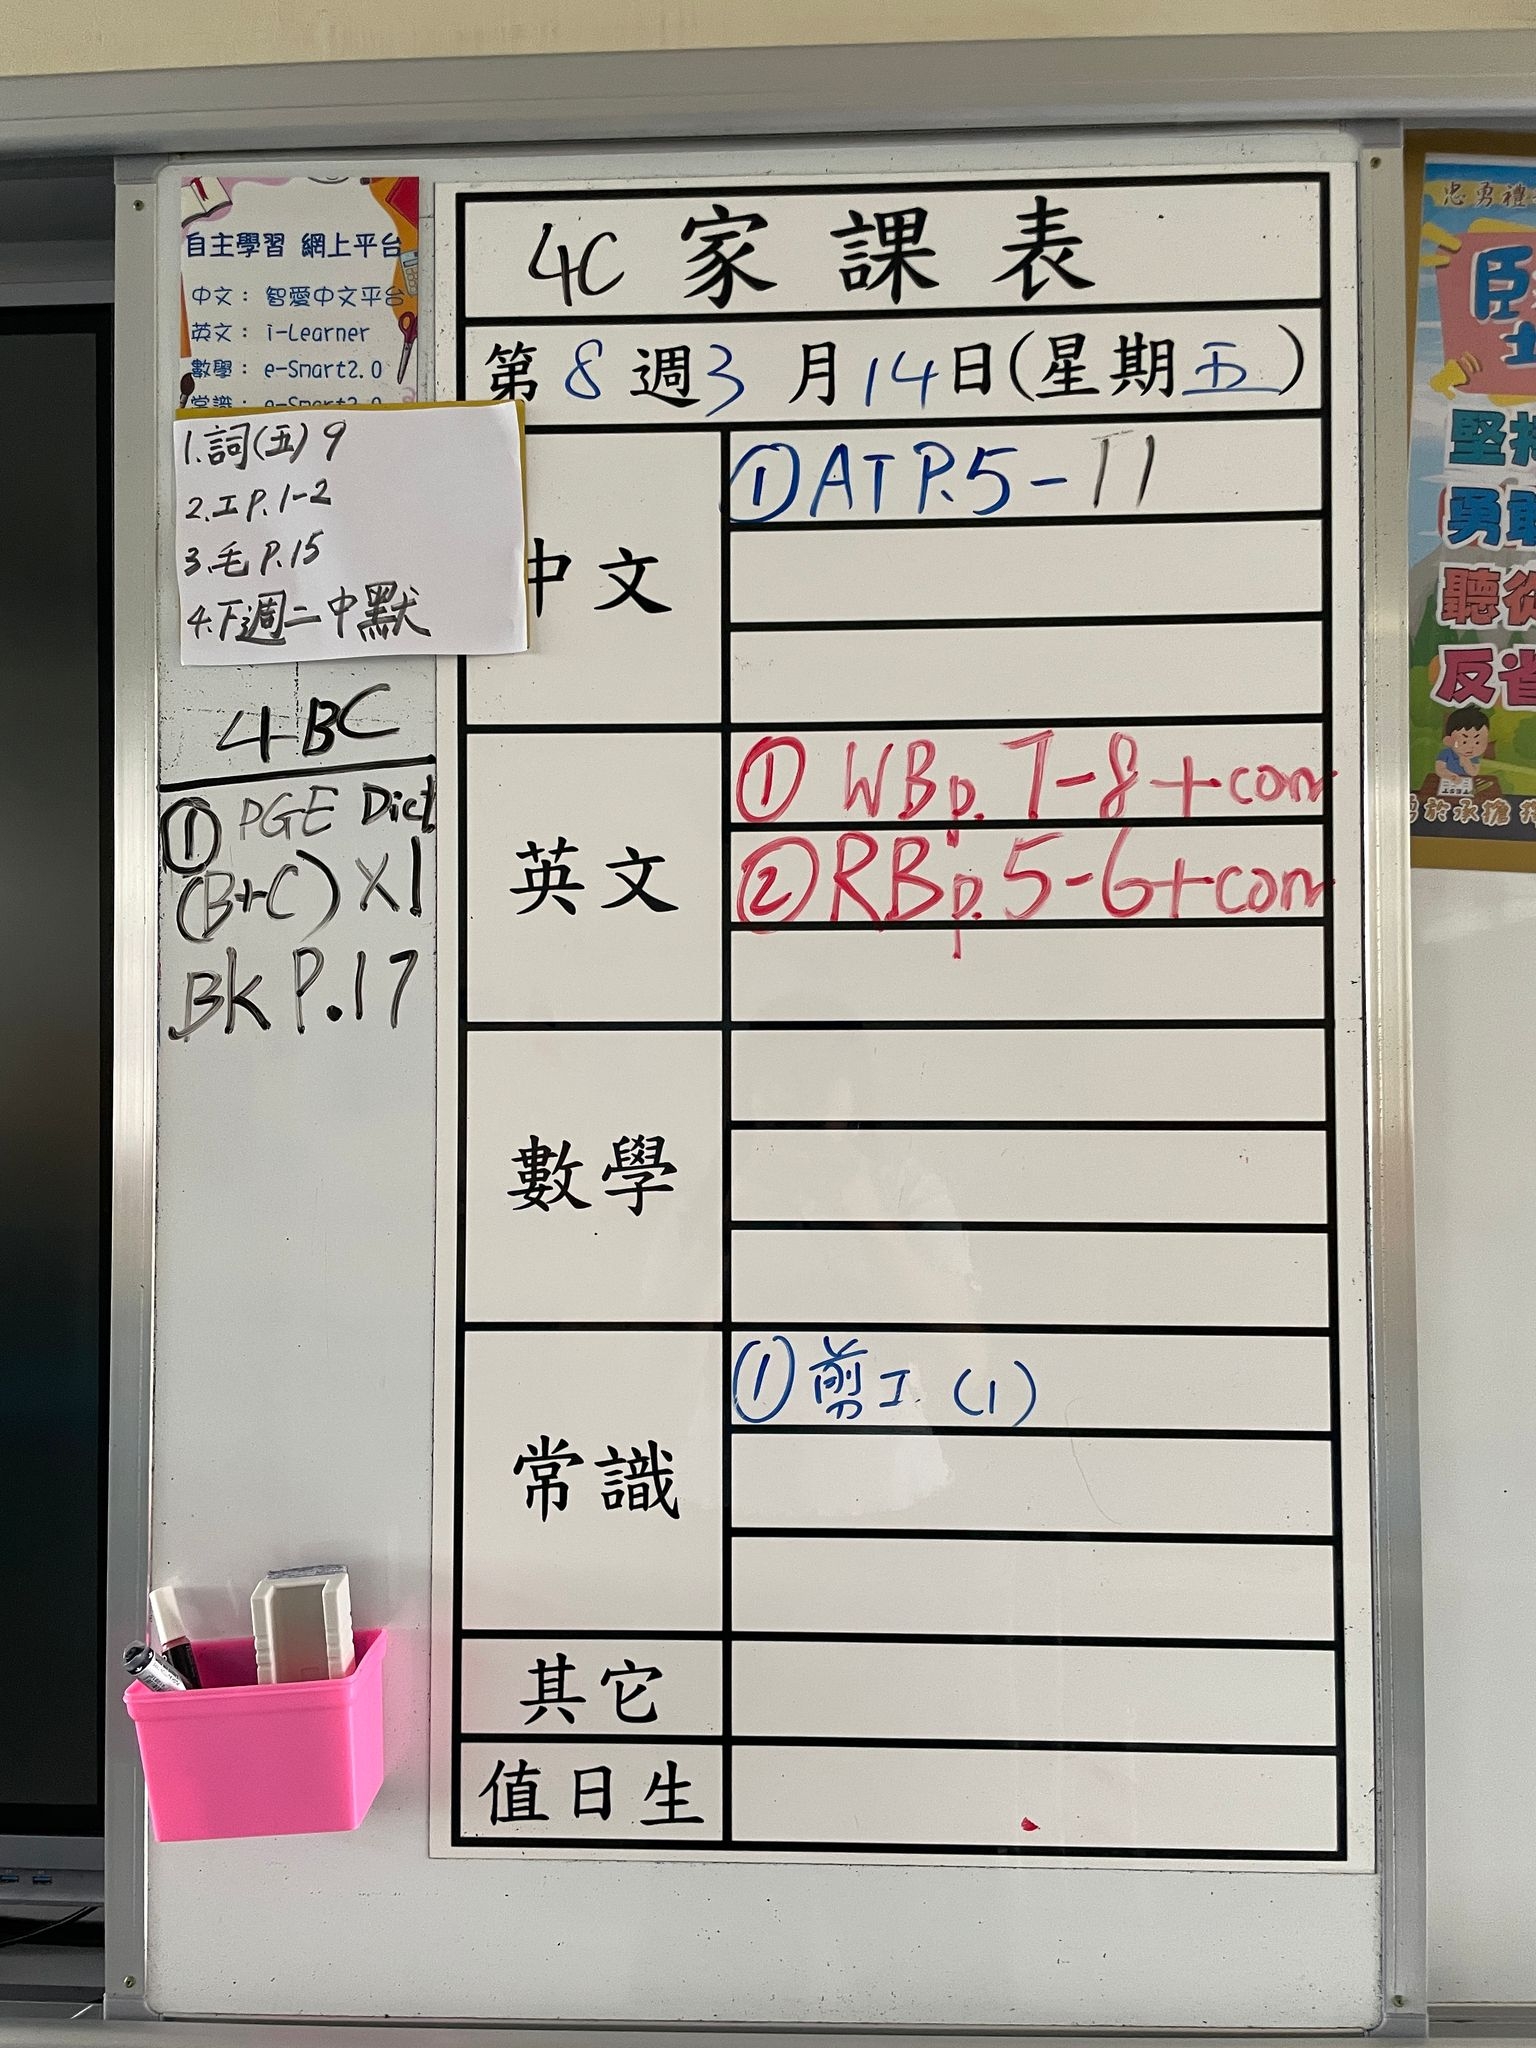 自主學習 網上平台
中文： 智愛中文平台
英文： i-Learner
數學： e-Smart2.0
常識： e-Smart2.0
1.詞(五)9
2.工P.1-2
3.毛P.15
4.下週二中默
4BC
① PGE Dict
(B+C) x1
BK P.17
4C 家課表
第8週3月14日(星期五)
中文
① AT P.5-
英文
① WB p. 7-8+corr
② RB p. 5-6+corr
數學
常識
① 剪工 (1)
其它
值日生
忠勇禮
堅
勇敢
聽從
反省
於承擔